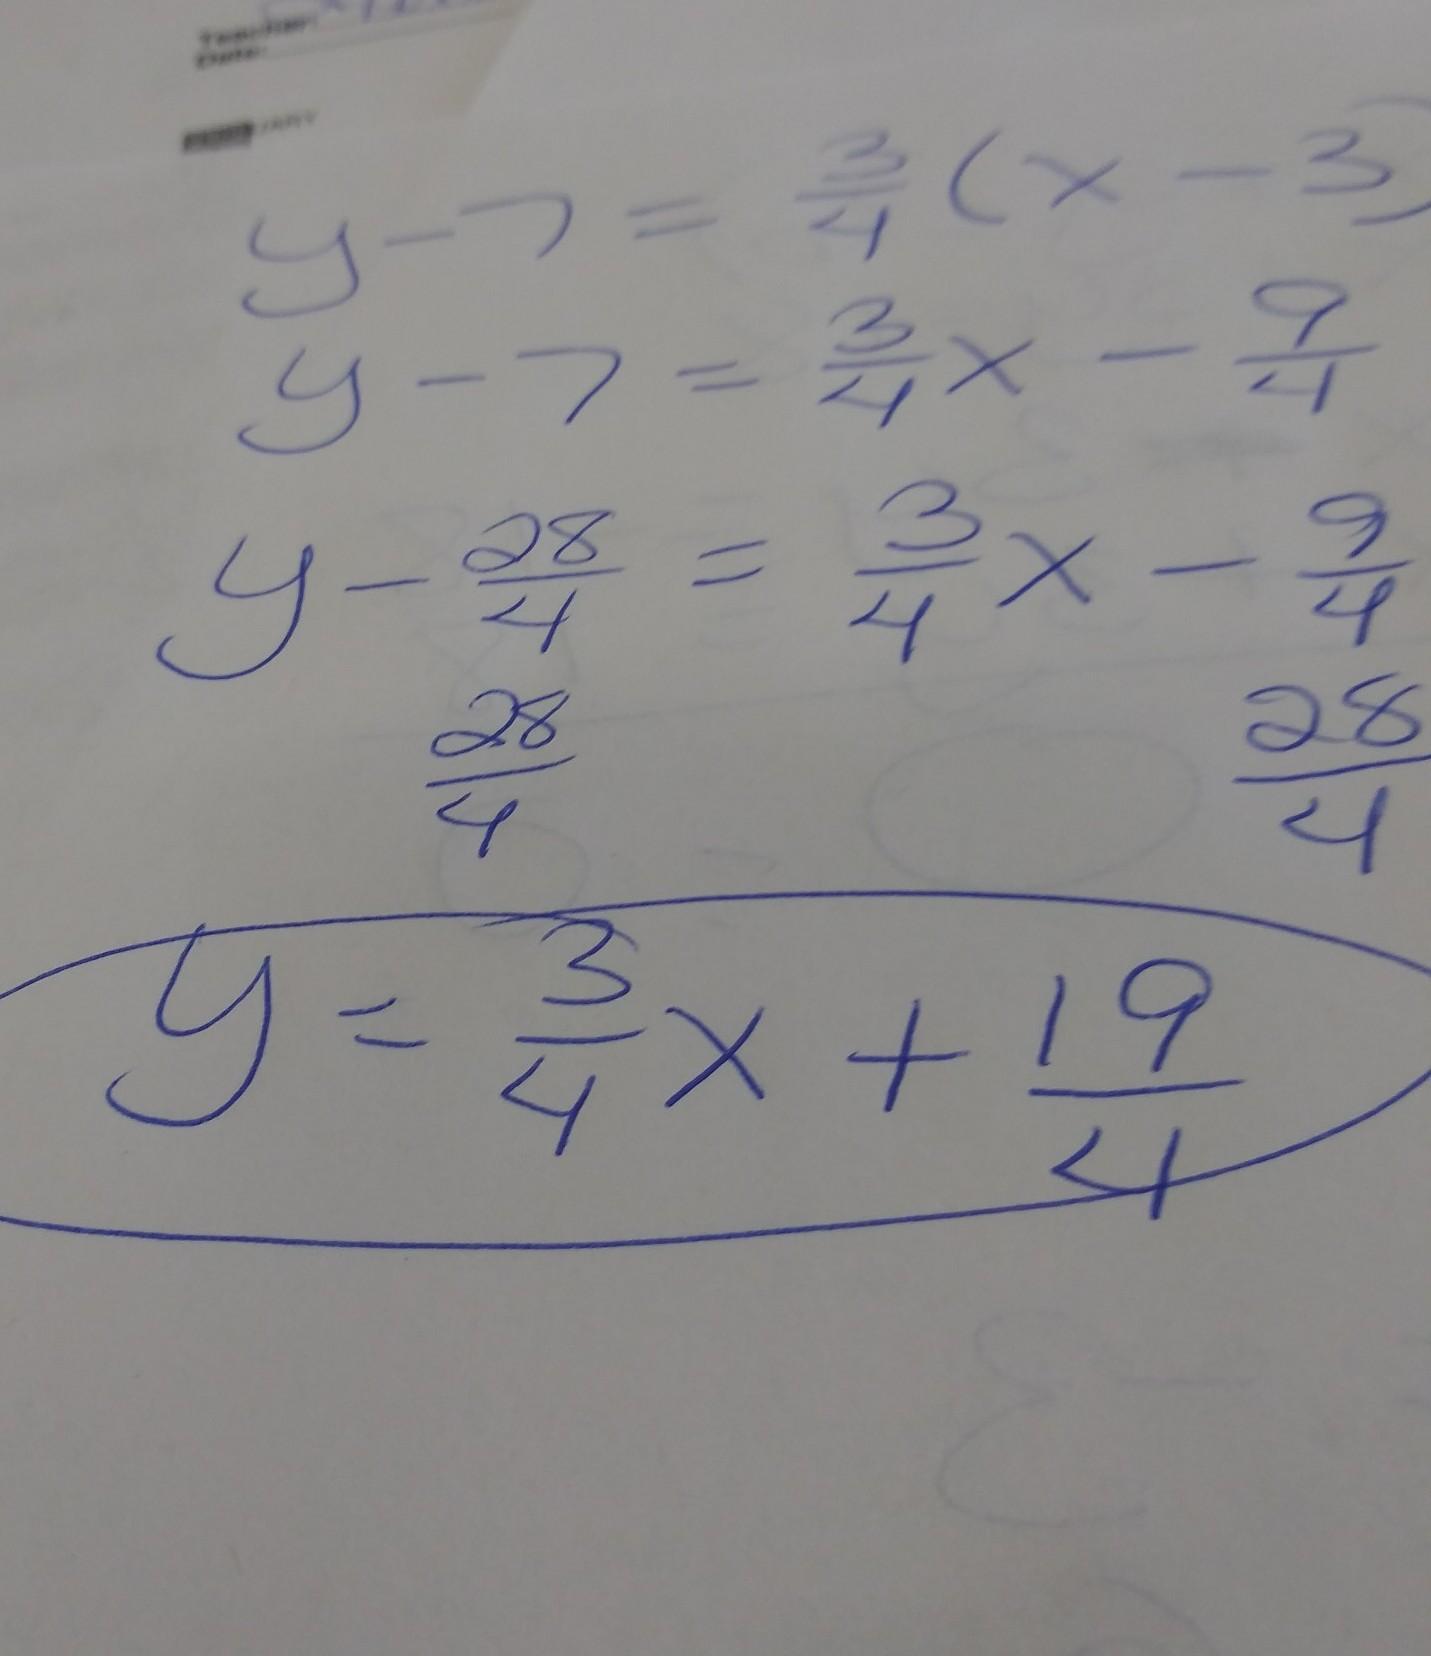 Teacher:
Date:
y - 7 = 3/4 (x - 3)
y - 7 = 3/4 x - 9/4
y - 28/4 = 3/4 x - 9/4
28/4 28/4
y = 3/4 x + 19/4